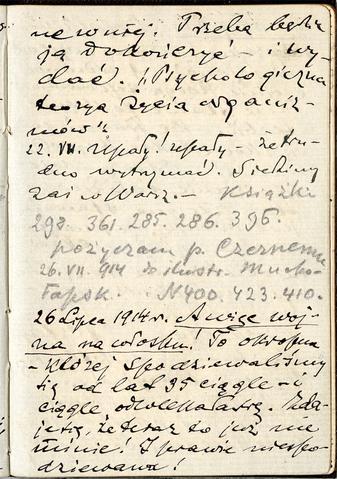 nowszej. Trzeba będzie
ją dokończyć – i wy-
dać. „Psychologiczna
teorya życia organiz-
mów”.
22. VII. Upały! upały – że tru-
dno wytrzymać. Siedzimy
zaś w Warsz. – Książki
298. 361. 285. 286. 396.
pożyczam p. Czernemu
26. VII. 914 do ilustr. Mucho-
łapsk. N 400. 423. 410.
26 Lipca 1914 r. A więc woj-
na na włosku! To okropna
– której spodziewaliśmy
się od lat 35 ciągle – i
ciągle odwlekała się. Zda-
je się, że teraz to już nie
minie! I prawie niespo-
dziewana!